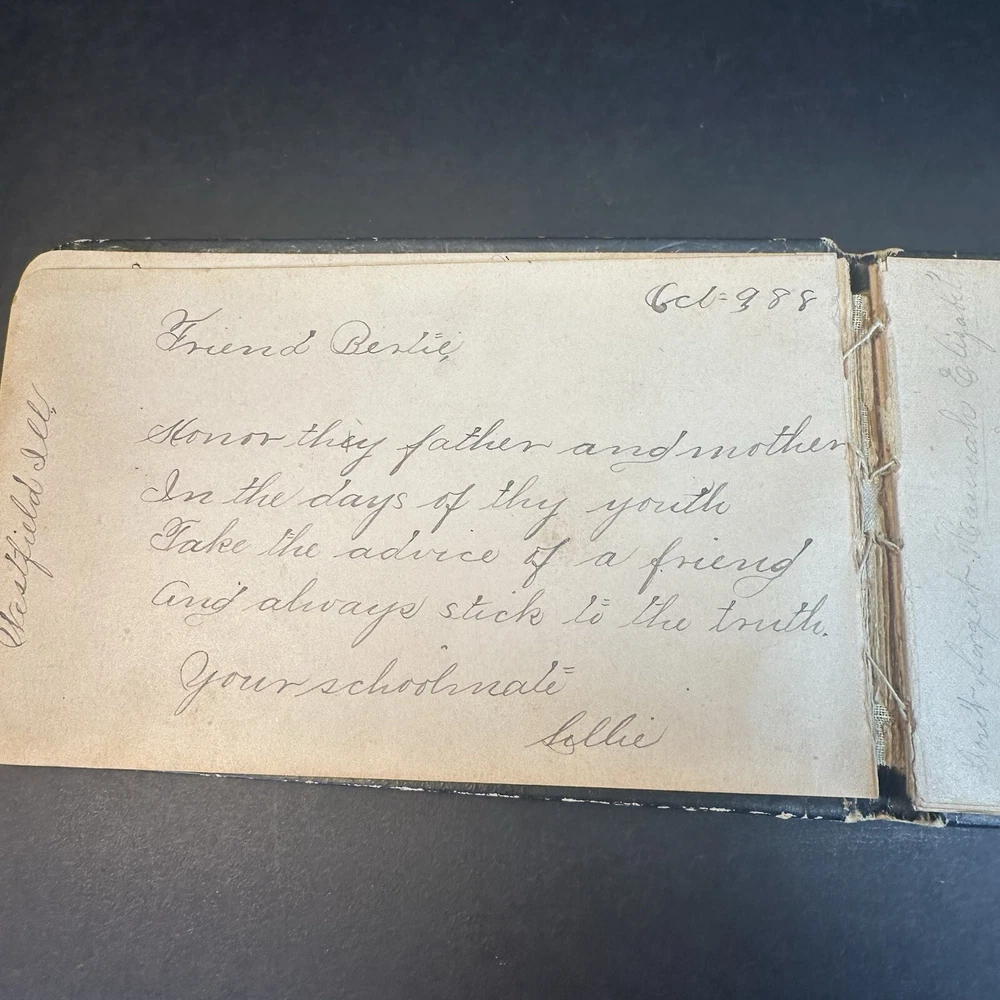 Oct= 9 88
Friend Bertie,
Honor thy father and mother
In the days of thy youth
Take the advice of a friend
And always stick to the truth.
Your schoolmate
Lollie
Westfield Ill,
forget Hannah Elizabeth